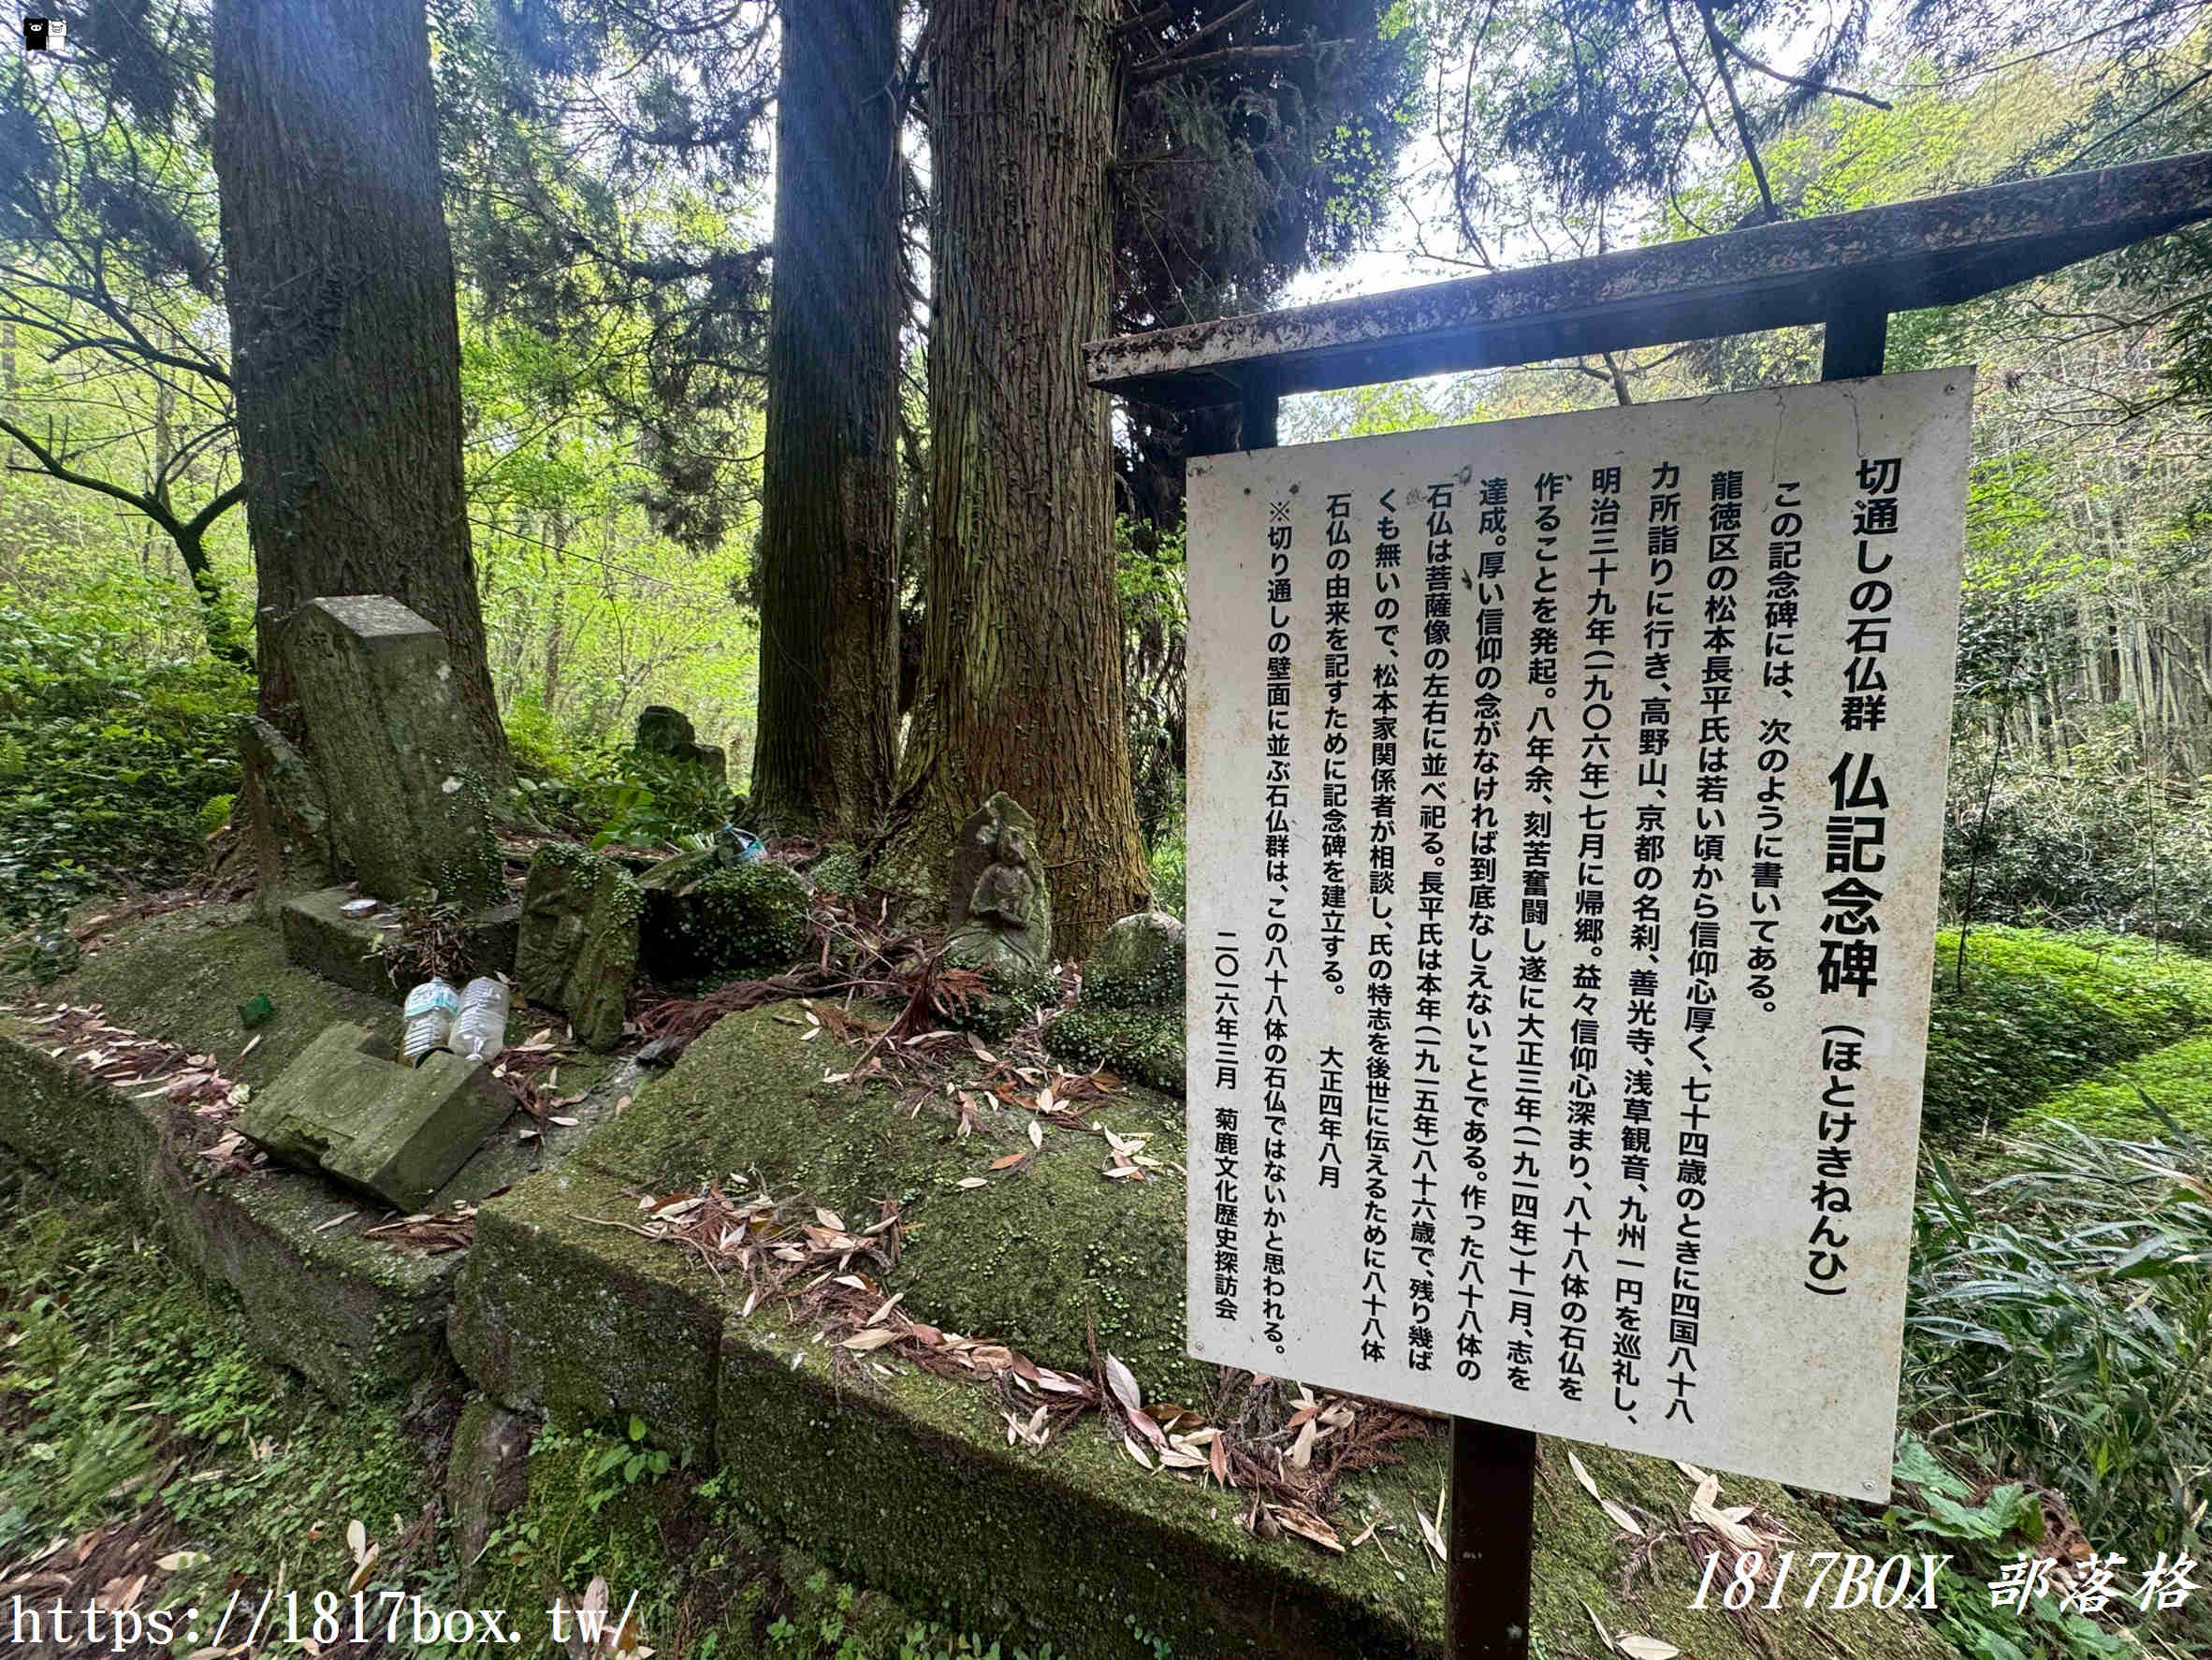 切通しの石仏群 仏記念碑 (ほとけきねんひ)
この記念碑には、次のように書いてある。
龍徳区の松本長平氏は若い頃から信仰心厚く、七十四歳のときに四国八十八
カ所詣りに行き、高野山、京都の名刹、善光寺、浅草観音、九州一円を巡礼し、
明治三十九年(一九〇六年)七月に帰郷。益々信仰心深まり、八十八体の石仏を
作ることを発起。八年余、刻苦奮闘し遂に大正三年(一九一四年)十一月、志を
達成。厚い信仰の念がなければ到底なしえないことである。作った八十八体の
石仏は菩薩像の左右に並べ祀る。長平氏は本年(一九一五年)八十六歳で、残り幾ば
くも無いので、松本家関係者が相談し、氏の特志を後世に伝えるために八十八体
石仏の由来を記すために記念碑を建立する。 大正四年八月
※切り通しの壁面に並ぶ石仏群は、この八十八体の石仏ではないかと思われる。
二〇一六年三月 菊鹿文化歴史探訪会
1817BOX 部落格
https://1817box.tw/